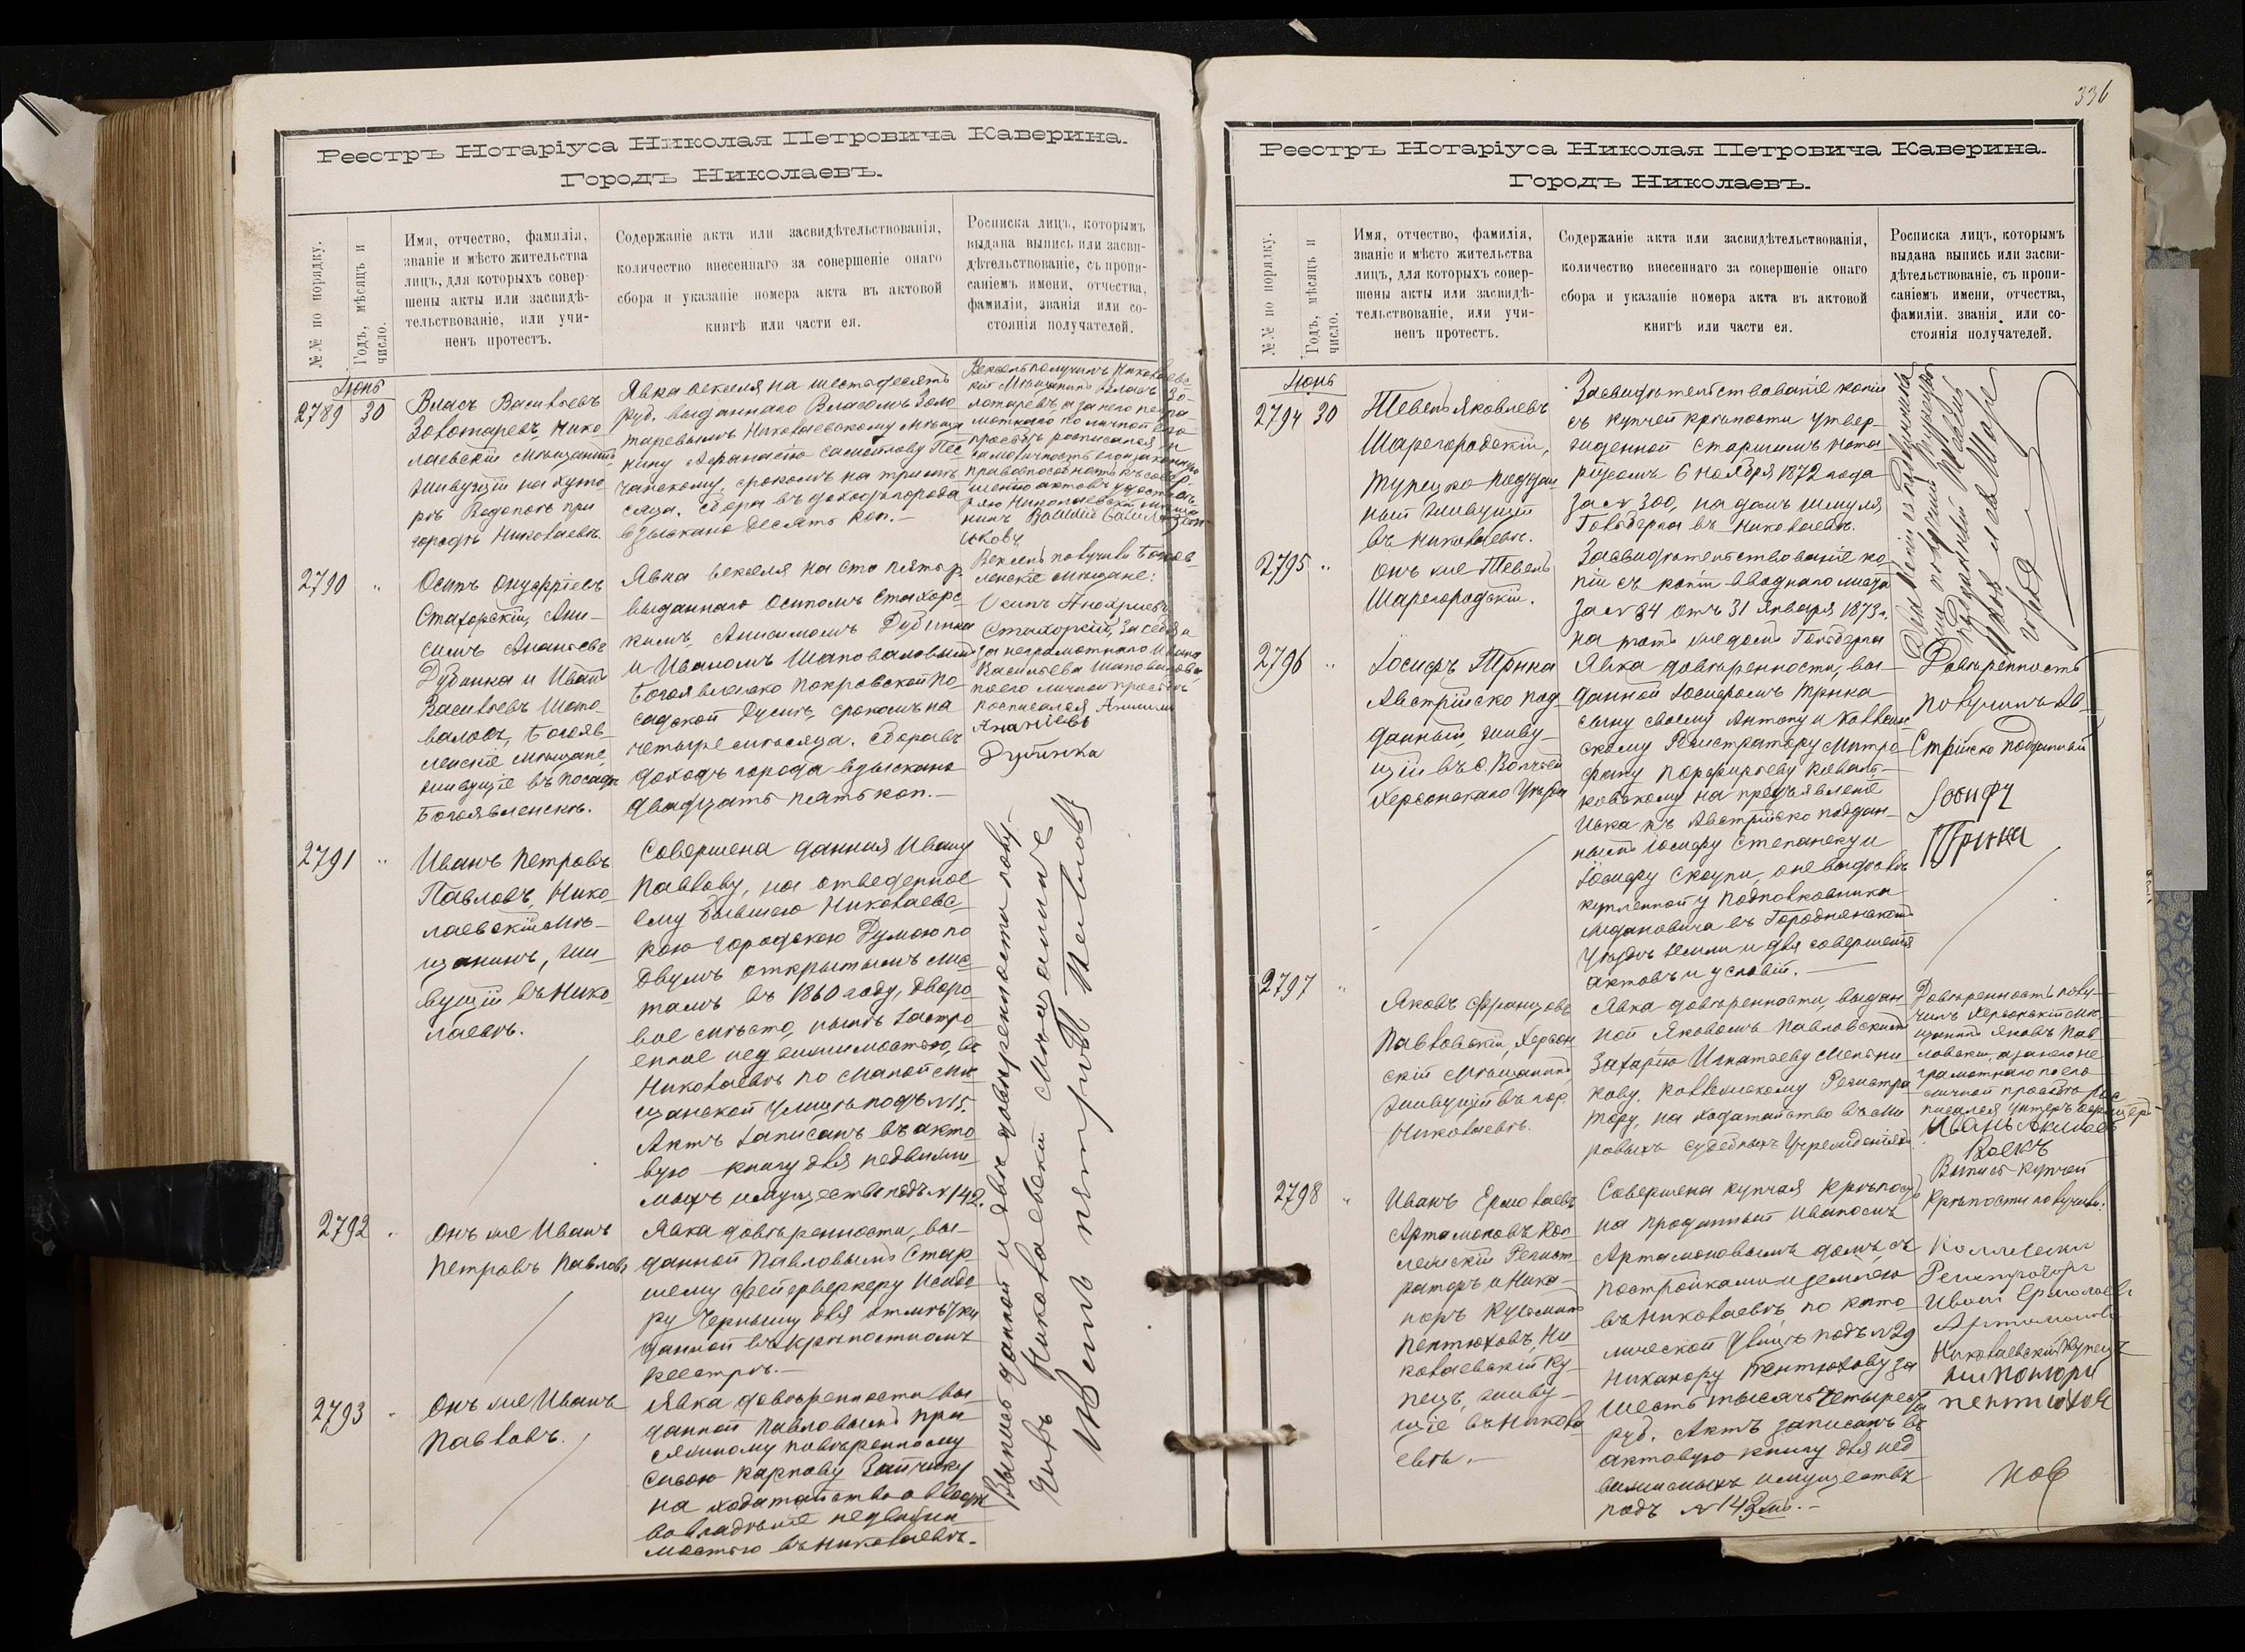 Реестръ Нотаріуса Николая Петровича Каверина.
Городъ Николаевъ.
№№ по порядку.
Годъ, мѣсяцъ и
число.
Имя, отчество, фамилія,
званіе и мѣсто жительства
лицъ, для которыхъ совер-
шены акты или засвидѣ-
тельствованіе, или учи-
ненъ протестъ.
Содержаніе акта или засвидѣтельствованія,
количество внесеннаго за совершеніе онаго
сбора и указаніе номера акта въ актовой
книгѣ или части ея.
Росписка лицъ, которымъ
выдана выпись или засви-
дѣтельствованіе, съ пропи-
саніемъ имени, отчества,
фамиліи, званія или со-
стоянія получателей.
Іюнь
2789 30
Власъ Васильевъ
Золотаревъ, Нико
лаевскій мѣщанинъ
живущій на хуто
рѣ Водопоѣ при
городѣ Николаевѣ.
Явка векселя на шестьдесятъ
руб. выданнаго Власомъ Золо
таревымъ Николаевскому мѣща
нину Афанасію Самойлову Пес
чанскому, срокомъ на три мѣ
сяца. Сбора въ доходъ города
взыскано десять коп.—
Вексель получилъ Николаевс-
кій мѣщанинъ Власъ Зо-
лотаревъ, а за него негра-
мотнаго по личной его
просьбѣ росписался и
самоличность его и законную
правоспособность къ совер-
шенію актовъ удостовѣ-
ряю Николаевскій мѣща
нинъ
2790 "
Осипъ Онуфріевъ
Стахорскій, Ани-
симъ Ананьевъ
Дубинка и Иванъ
Васильевъ Шапо
валовъ, Богояв-
ленскіе мѣщане,
живущіе въ посадѣ
Богоявленскѣ.
Явка векселя на сто пять р.
выданнаго Осипомъ Стахорс-
кимъ, Анисимомъ Дубинка
и Иваномъ Шаповаловымъ
Богоявленско Покровской по-
садской Думѣ, срокомъ на
четыре мѣсяца. Сбора въ
доходъ города взыскано
двадцать пять коп.—
Вексель получили Богояв-
ленскіе мѣщане:
Осипъ Анохріевъ
Стахорскій, за себя и
за неграмотнаго Ивана
Васильева Шаповалова,
по его личной просьбѣ
росписался Анисимъ
Ананіевъ
Дубинка
2791 "
Иванъ Петровъ
Павловъ, Нико-
лаевскій мѣ-
щанинъ, жи-
вущій въ Нико-
лаевѣ.
Совершена данная Ивану
Павлову, на отведенное
ему бывшею Николаевс-
кою городскою Думою по
двумъ открытымъ лис
тамъ въ 1860 году, дворо
вое мѣсто, нынѣ застро
енное недвижимостью, въ
Николаевѣ по Малой Мѣ-
щанской улицѣ подъ №15.
Актъ записанъ въ акто
вую книгу для недвижи
мыхъ имуществъ подъ №142.
2792 "
Онъ же Иванъ
Петровъ Павловъ
Явка довѣренности, вы-
данной Павловымъ Стар-
шему фейерверкеру Исидо
ру Чернышу для отмѣтки
данной въ крѣпостномъ
реестрѣ.—
2793 "
Онъ же Иванъ
Павловъ.
Явка довѣренности вы-
данной Павловымъ при-
сяжному повѣренному
Карпову Зайчику
на ходатайство о вводѣ
во владѣніе недвижи
мостью въ Николаевѣ.
Выпись данной и двѣ довѣренности полу-
чилъ Николаевскій мѣщанинъ
Иванъ петровъ Павловъ
336
Реестръ Нотаріуса Николая Петровича Каверина.
Городъ Николаевъ.
№№ по порядку.
Годъ, мѣсяцъ и
число.
Имя, отчество, фамилія,
званіе и мѣсто жительства
лицъ, для которыхъ совер-
шены акты или засвидѣ-
тельствованіе, или учи-
ненъ протестъ.
Содержаніе акта или засвидѣтельствованія,
количество внесеннаго за совершеніе онаго
сбора и указаніе номера акта въ актовой
книгѣ или части ея.
Росписка лицъ, которымъ
выдана выпись или засви-
дѣтельствованіе, съ пропи-
саніемъ имени, отчества,
фамиліи. званія или со-
стоянія получателей.
Іюнь
2794 30
Тевель Яковлевъ
Шарегородскій,
Турецко поддан
ный живущій
въ Николаевѣ.
Засвидѣтельствованіе копіи
съ купчей крѣпости утвер-
жденной Старшимъ нота
ріусомъ 6 Ноября 1872 года
за № 300, на домъ Шмуля
Гольдзгла въ Николаевѣ.
2795 "
Онъ же Тевель
Шарегородскій.
Засвидѣтельствованіе ко
піи съ копіи вводнаго листа
за № 84 отъ 31 Января 1873 г.
на тотъ же домъ
2796 "
Іосифъ Трнка
Австрійско под-
данный, живу-
щій въ с.
Херсонскаго Уѣзда
Явка довѣренности, вы-
данной Іосифомъ Трнка
сыну своему Антону и Коллеж
скому Регистратору Митро
фану Порфирьеву Коваль-
ковскому на предъявленіе
иска къ Австрійско поддан-
нымъ Іосифу Степанеку и
Іосифу Скоупи, о
купленной у Подполковника
въ Городнянскомъ
Уѣздѣ земли и для совершенія
актовъ и условій.—
Довѣренность
получилъ Ав-
стрійско подданный
Іосифъ
Трнка
2797 "
Яковъ Францовъ
Павловскій, Херсон
скій мѣщанинъ,
живущій въ гор.
Николаевѣ.
Явка довѣренности, выдан
ной Яковомъ Павловскимъ
Захарію Игнатьеву Мельни
кову, Коллежскому Регистра
тору, на ходатайство въ ми
ровыхъ судебныхъ Учрежденіяхъ.
Довѣренность полу-
чилъ Херсонскій мѣ-
щанинъ Яковъ Пав-
ловскій, а за него не
грамотнаго по его
личной просьбѣ рос
писался унтеръ офицеръ
Иванъ
2798 "
Иванъ Ермолаевъ
Артамоновъ Кол-
лежскій Регист-
раторъ и Ника-
норъ Кузьминъ
Пентюховъ, Ни-
колаевскій ку-
пецъ, живу-
щіе въ Никола
евѣ.—
Совершена купчая крѣпость
на проданный Иваномъ
Артамоновымъ домъ съ
постройками и землею
въ Николаевѣ, по като
лической улицѣ подъ №29
Никанору Пентюхову за
шесть тысячъ четыреста
руб. Актъ записанъ въ
актовую книгу для нед
вижимыхъ имуществъ
подъ №143мъ.—
Выпись купчей
крѣпости получили:
Коллежский
Регистраторъ
Иванъ Ермолаевъ
Артамоновъ
Николаевскій Купецъ
Никоноръ
пентюхов